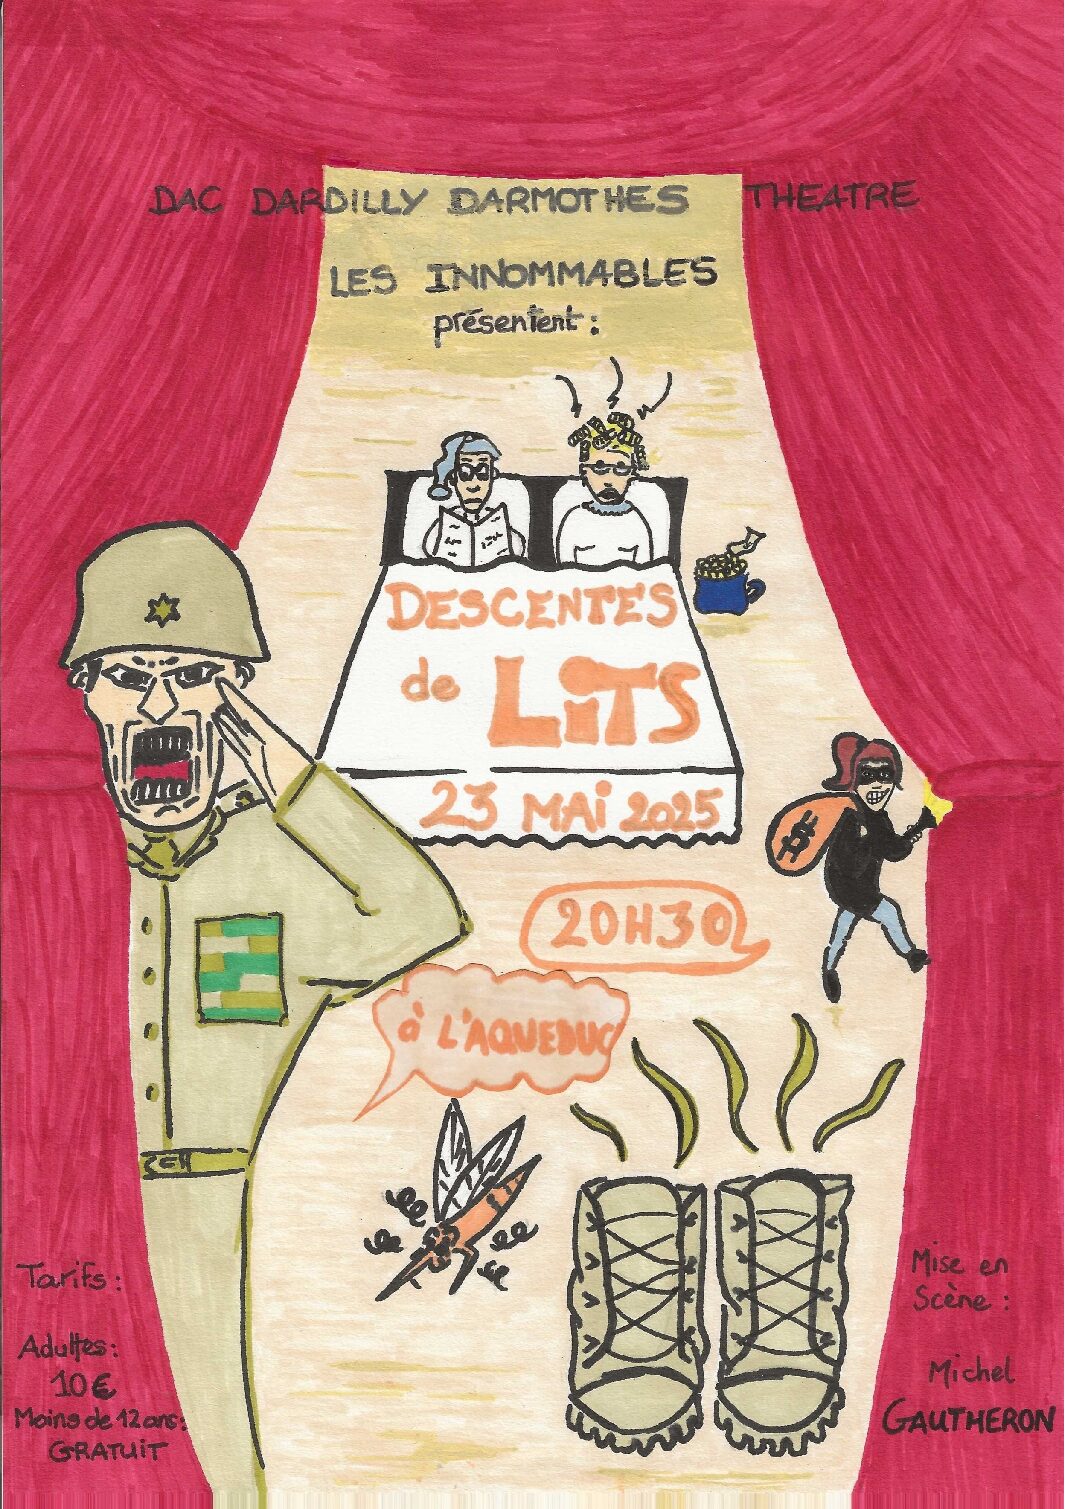 DAC DARDILLY DARMOTHES THEATRE
LES INNOMMABLES
présentent :
DESCENTES
de LiTS
23 MAi 2025
20H30
à L'AQUEDUC
Tarifs :
Adultes :
10€
Moins de 12 ans :
GRATUiT
Mise en
Scène :
Michel
GAUTHERON